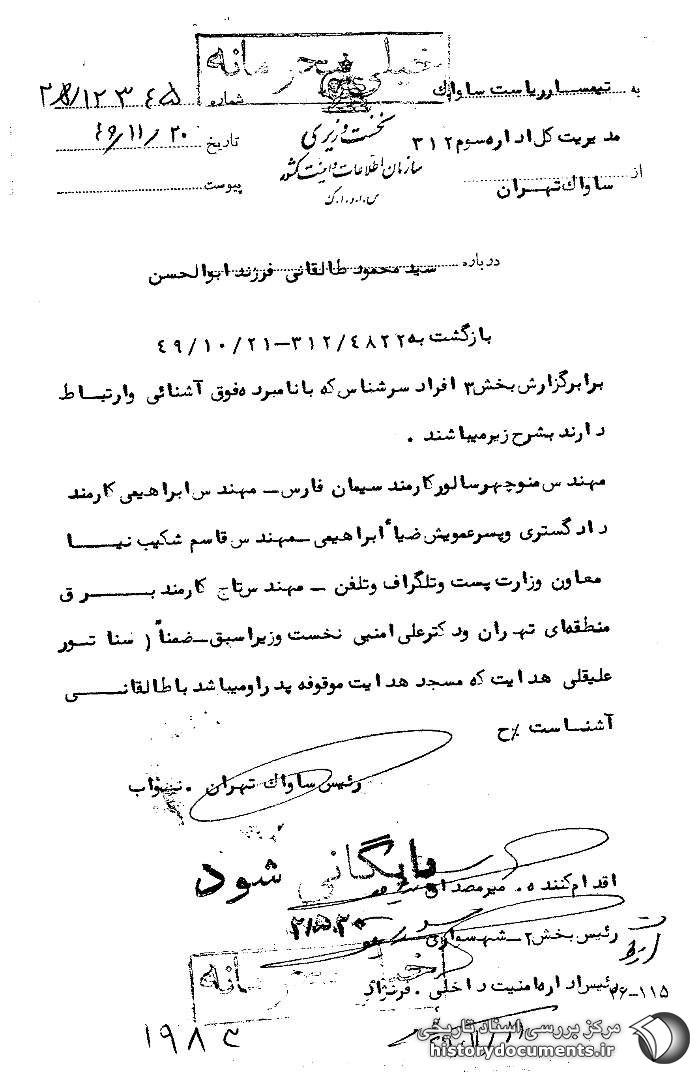 خیلی محرمانه
به تیمسار ریاست ساواک
شماره
مدیریت کل اداره سوم ۳۱۲
نخست وزیری
تاریخ ۴۹/۱۱/۲۰
از ساواک تهران
سازمان اطلاعات و امنیت کشور
س.ا.و.ا.ک
پیوست
درباره سید محمود طالقانی فرزند ابوالحسن
بازگشت به ۳۱۲/۴۸۲۲-۴۹/۱۰/۲۱
برابر گزارش بخش ۳ افراد سرشناس که با نامبرده فوق آشنائی و ارتباط
دارند بشرح زیر میباشند .
مهندس منوچهر سالور کارمند سیمان فارس ـ مهندس ابراهیمی کارمند
دادگستری و پسرعمویش ضیاء ابراهیمی ـ مهندس قاسم شکیب نیا
معاون وزارت پست و تلگراف و تلفن ـ مهندس تاج کارمند برق
منطقه‌ای تهران و دکتر علی امنیی نخست وزیر اسبق ـ ضمناً ( سناتور
علیقلی هدایت که مسجد هدایت موقوفه پدر او میباشد با طالقانی
آشناست ٪ح
رئیس ساواک تهران . نواب
بایگانی شود
اقدام کننده .
رئیس بخش ۲ ـ
خیلی محرمانه
رئیس اداره امنیت داخلی .
۳۶-۱۱۵
مرکز بررسی اسناد تاریخی
historydocuments.ir